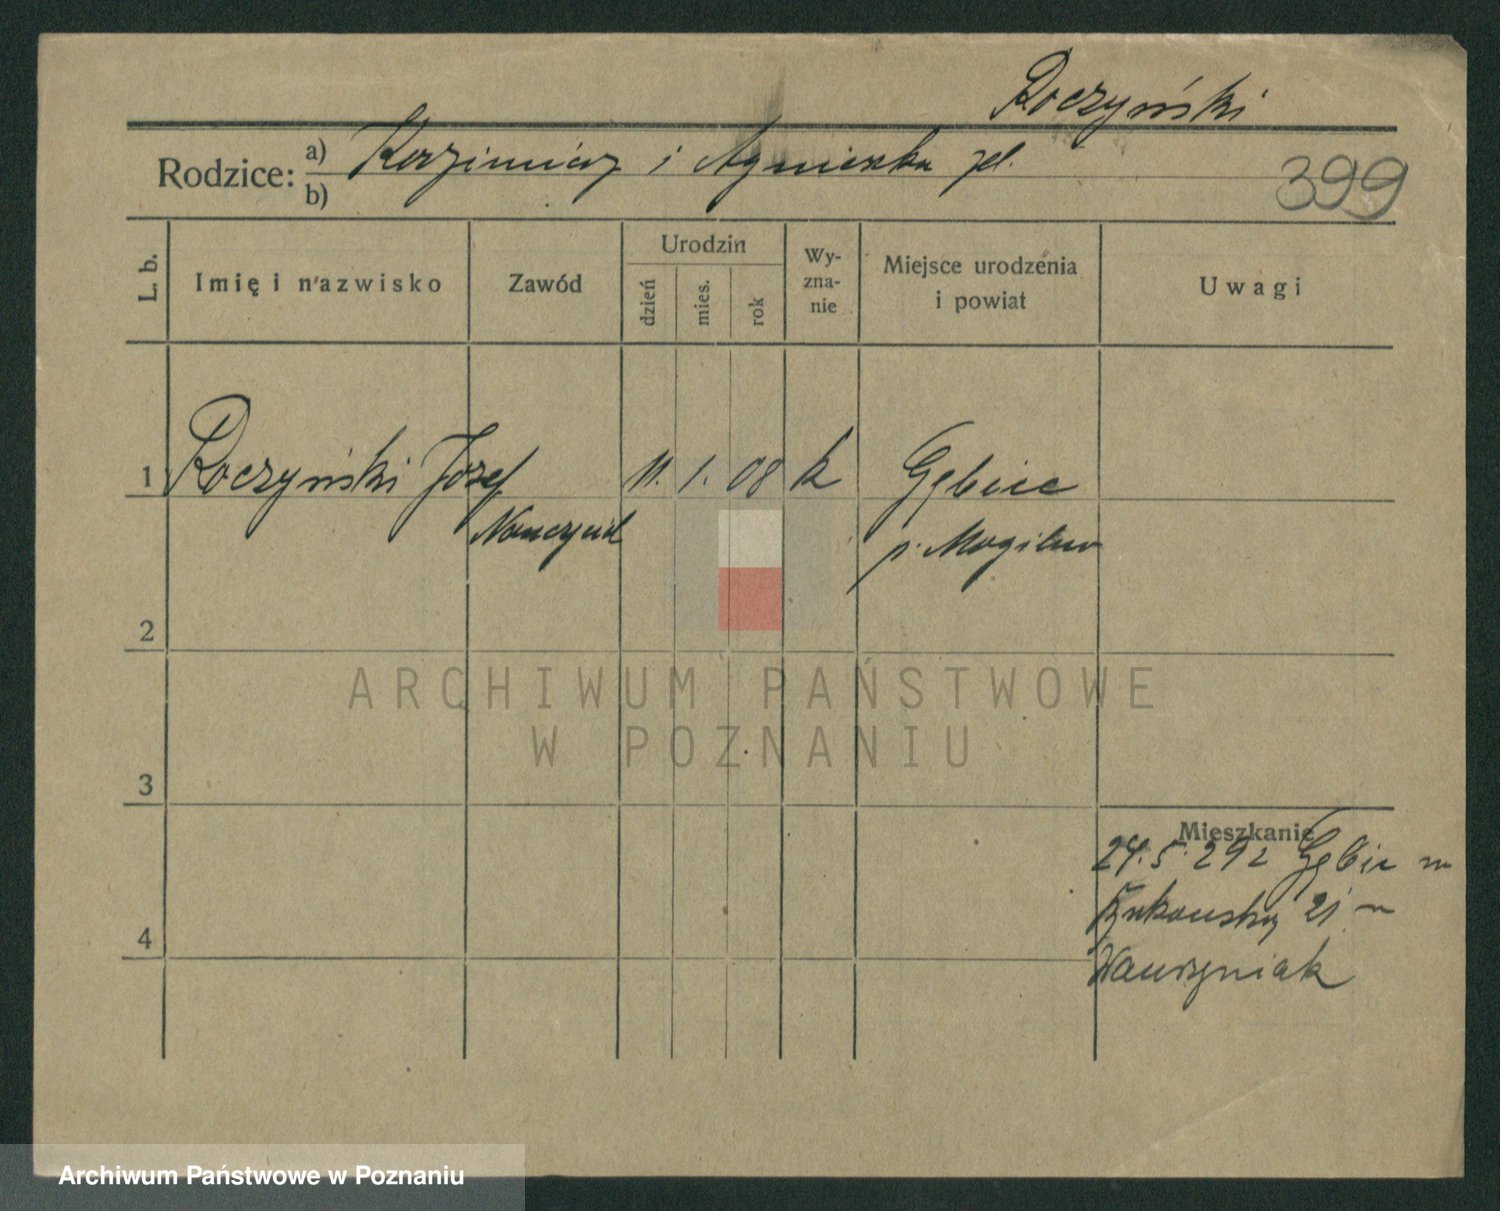 Roczyński
Rodzice: a) Kazimierz i Agnieszka
b)
399
L. b.
Imię i nazwisko
Zawód
Urodzin
dzień
mies.
rok
Wy-
zna-
nie
Miejsce urodzenia
i powiat
Uwagi
1 Roczyński Józef 11. 1. 08 k Gębice
Nauczyciel p. Mogilno
2
ARCHIWUM PAŃSTWOWE
W POZNANIU
3
Mieszkanie
24.5. Gębic
21
4
Wawrzyniak
Archiwum Państwowe w Poznaniu